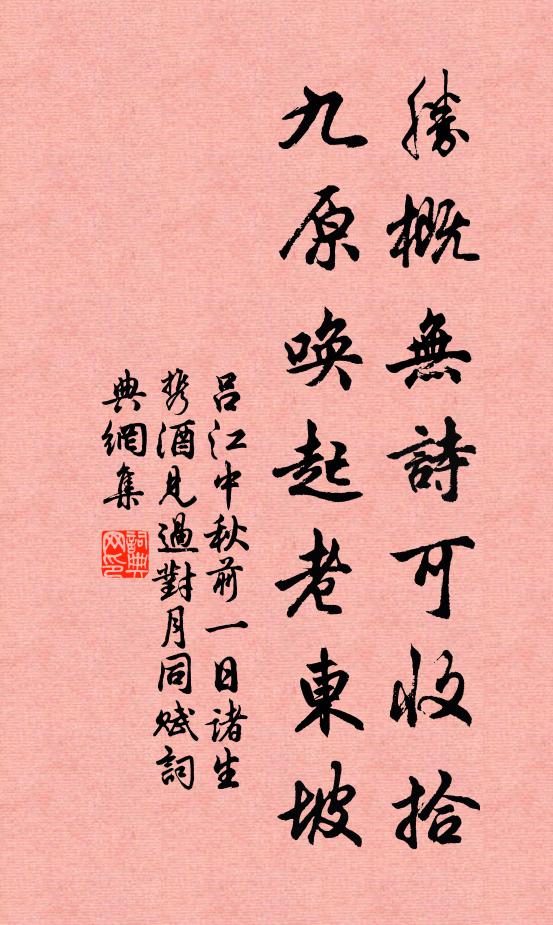 勝概無詩可收拾
九原喚起老東坡
呂江中秋前一日諸生
携酒見過對月同賦詞
典網集
詞典
网印